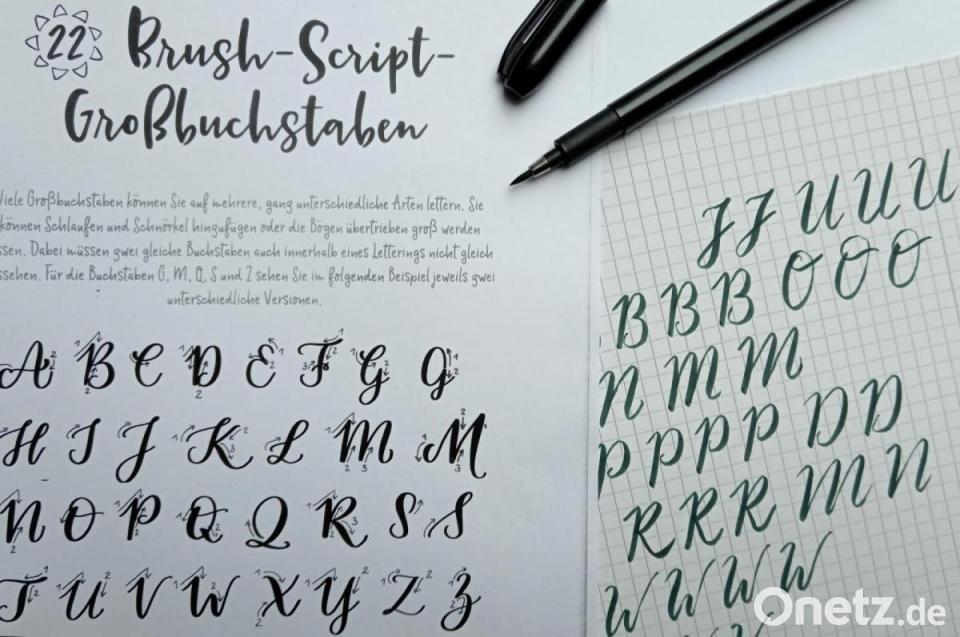 22 Brush-Script-
Großbuchstaben
Viele Großbuchstaben können Sie auf mehrere, ganz unterschiedliche Arten lettern. Sie
können Schlaufen und Schnörkel hinzufügen oder die Bögen übertrieben groß werden
ssen. Dabei müssen zwei gleiche Buchstaben auch innerhalb eines Letterings nicht gleich
ssehen. Für die Buchstaben G, M, Q, S und Z sehen Sie im folgenden Beispiel jeweils zwei
unterschiedliche Versionen.
A B C D E F G G
H I J K L M M
N O P Q Q R S S
T U V W X Y Z Z
J J U U U
B B B O O O
N M M
P P P P D D
R R R M N
W W W W
Onetz.de